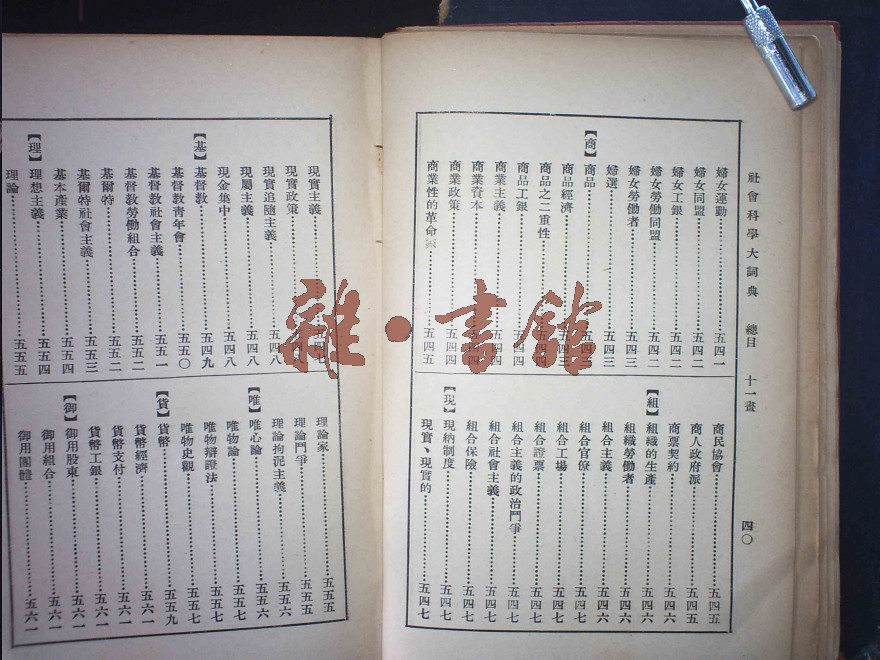 社會科學大詞典 總目 十一畫 四〇
婦女運動 五四一
婦女同盟 五四二
婦女工銀 五四二
婦女勞働同盟 五四二
婦女勞働者 五四三
婦選 五四三
【商】商品 五四三
商品經濟
商品之二重性
商品工銀 五四四
商業主義
商業資本
商業政策
商業性的革命家 五四五
商民協會 五四五
商人政府派 五四五
商票契約 五四六
【組】組織的生產 五四六
組織勞働者 五四六
組合主義 五四六
組合官僚 五四七
組合工場 五四七
組合證票 五四七
組合主義的政治鬥爭 五四七
組合社會主義 五四七
組合保險 五四七
【現】現納制度 五四七
現實、現實的 五四七
現實主義
現實政策
現實追隨主義 五四八
現屬主義 五四八
現金集中 五四八
【基】基督教 五四九
基督教青年會 五五〇
基督教社會主義 五五一
基督教勞働組合 五五二
基爾特 五五二
基爾特社會主義 五五三
基本產業 五五四
【理】理想主義 五五四
理論 五五五
理論家 五五五
理論鬥爭 五五五
理論拘泥主義 五五六
【唯】唯心論 五五六
唯物論 五五七
唯物辯證法 五五七
唯物史觀 五五七
【貨】貨幣 五五九
貨幣經濟 五六一
貨幣支付 五六一
貨幣工銀 五六一
【御】御用股東 五六一
御用組合 五六一
御用團體 五六一
雜·書館